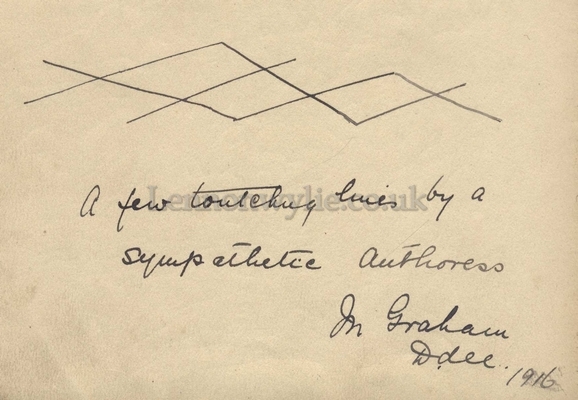 A few touching lines by a
Lennonwylie.co.uk
sympathetic Authoress
M Graham
1916